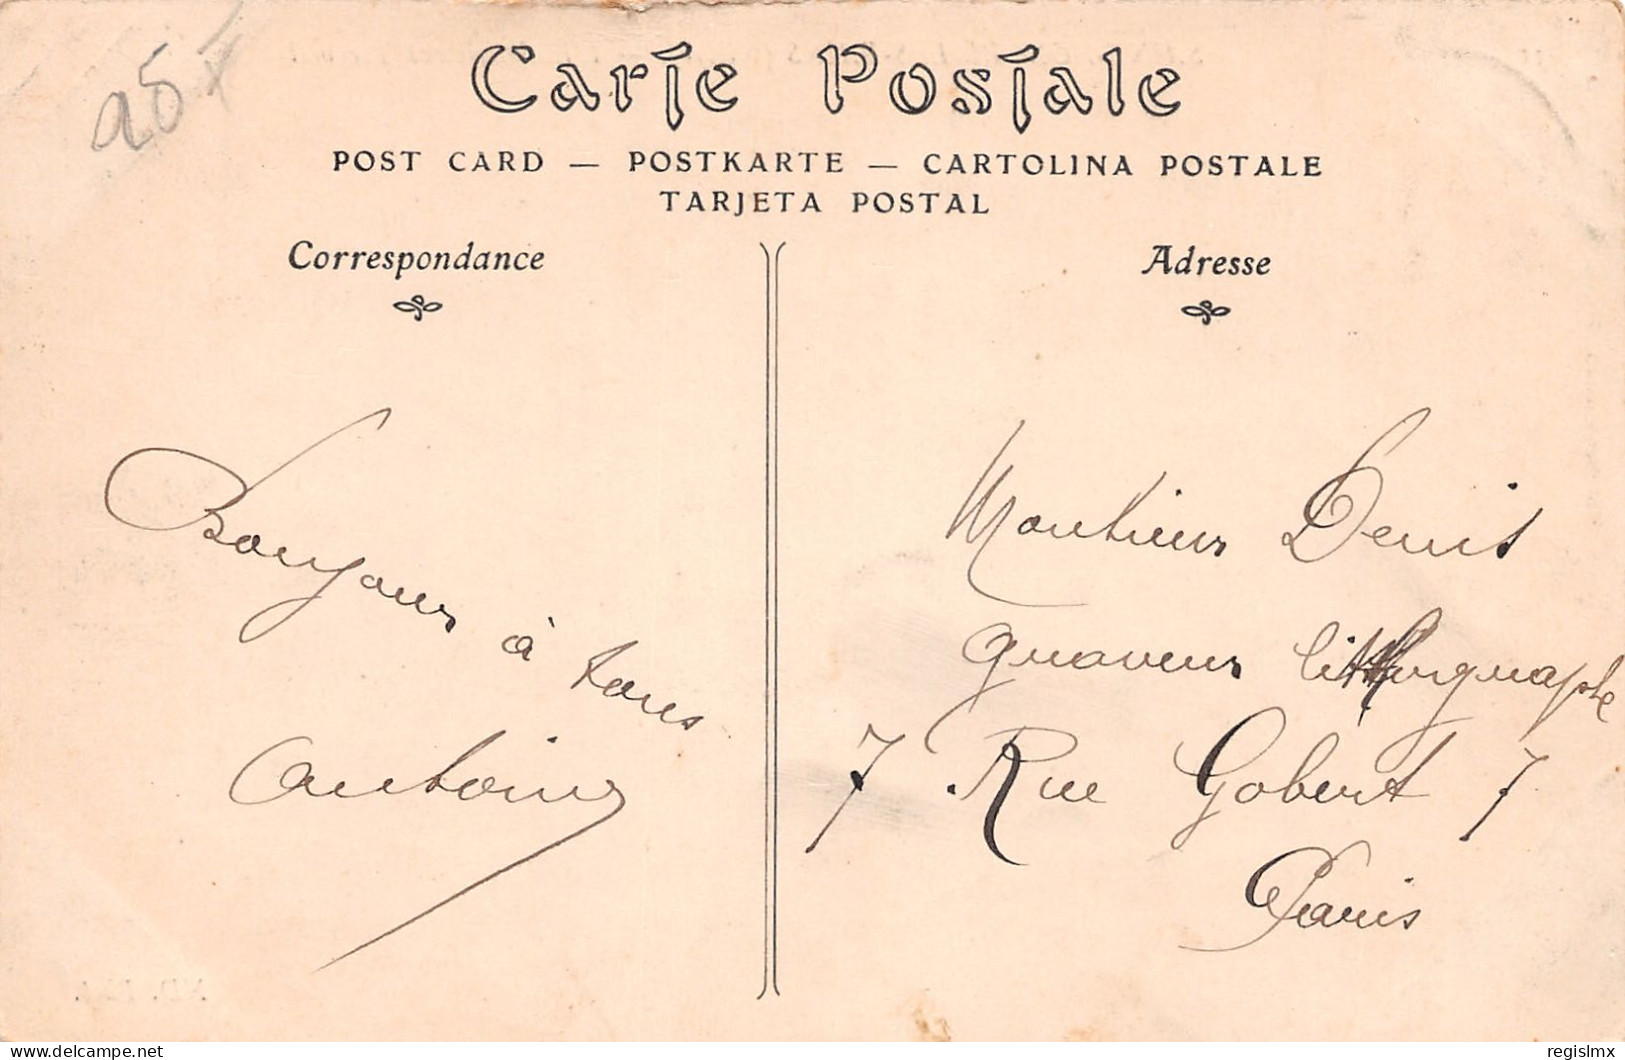 a5
Carte Postale
POST CARD — POSTKARTE — CARTOLINA POSTALE
TARJETA POSTAL
Correspondance
Adresse
Bonjour
à tous
Antoine
Monsieur Denis
graveur lithographe
7 Rue Gobert 7
Paris
delcampe.net
regislmx